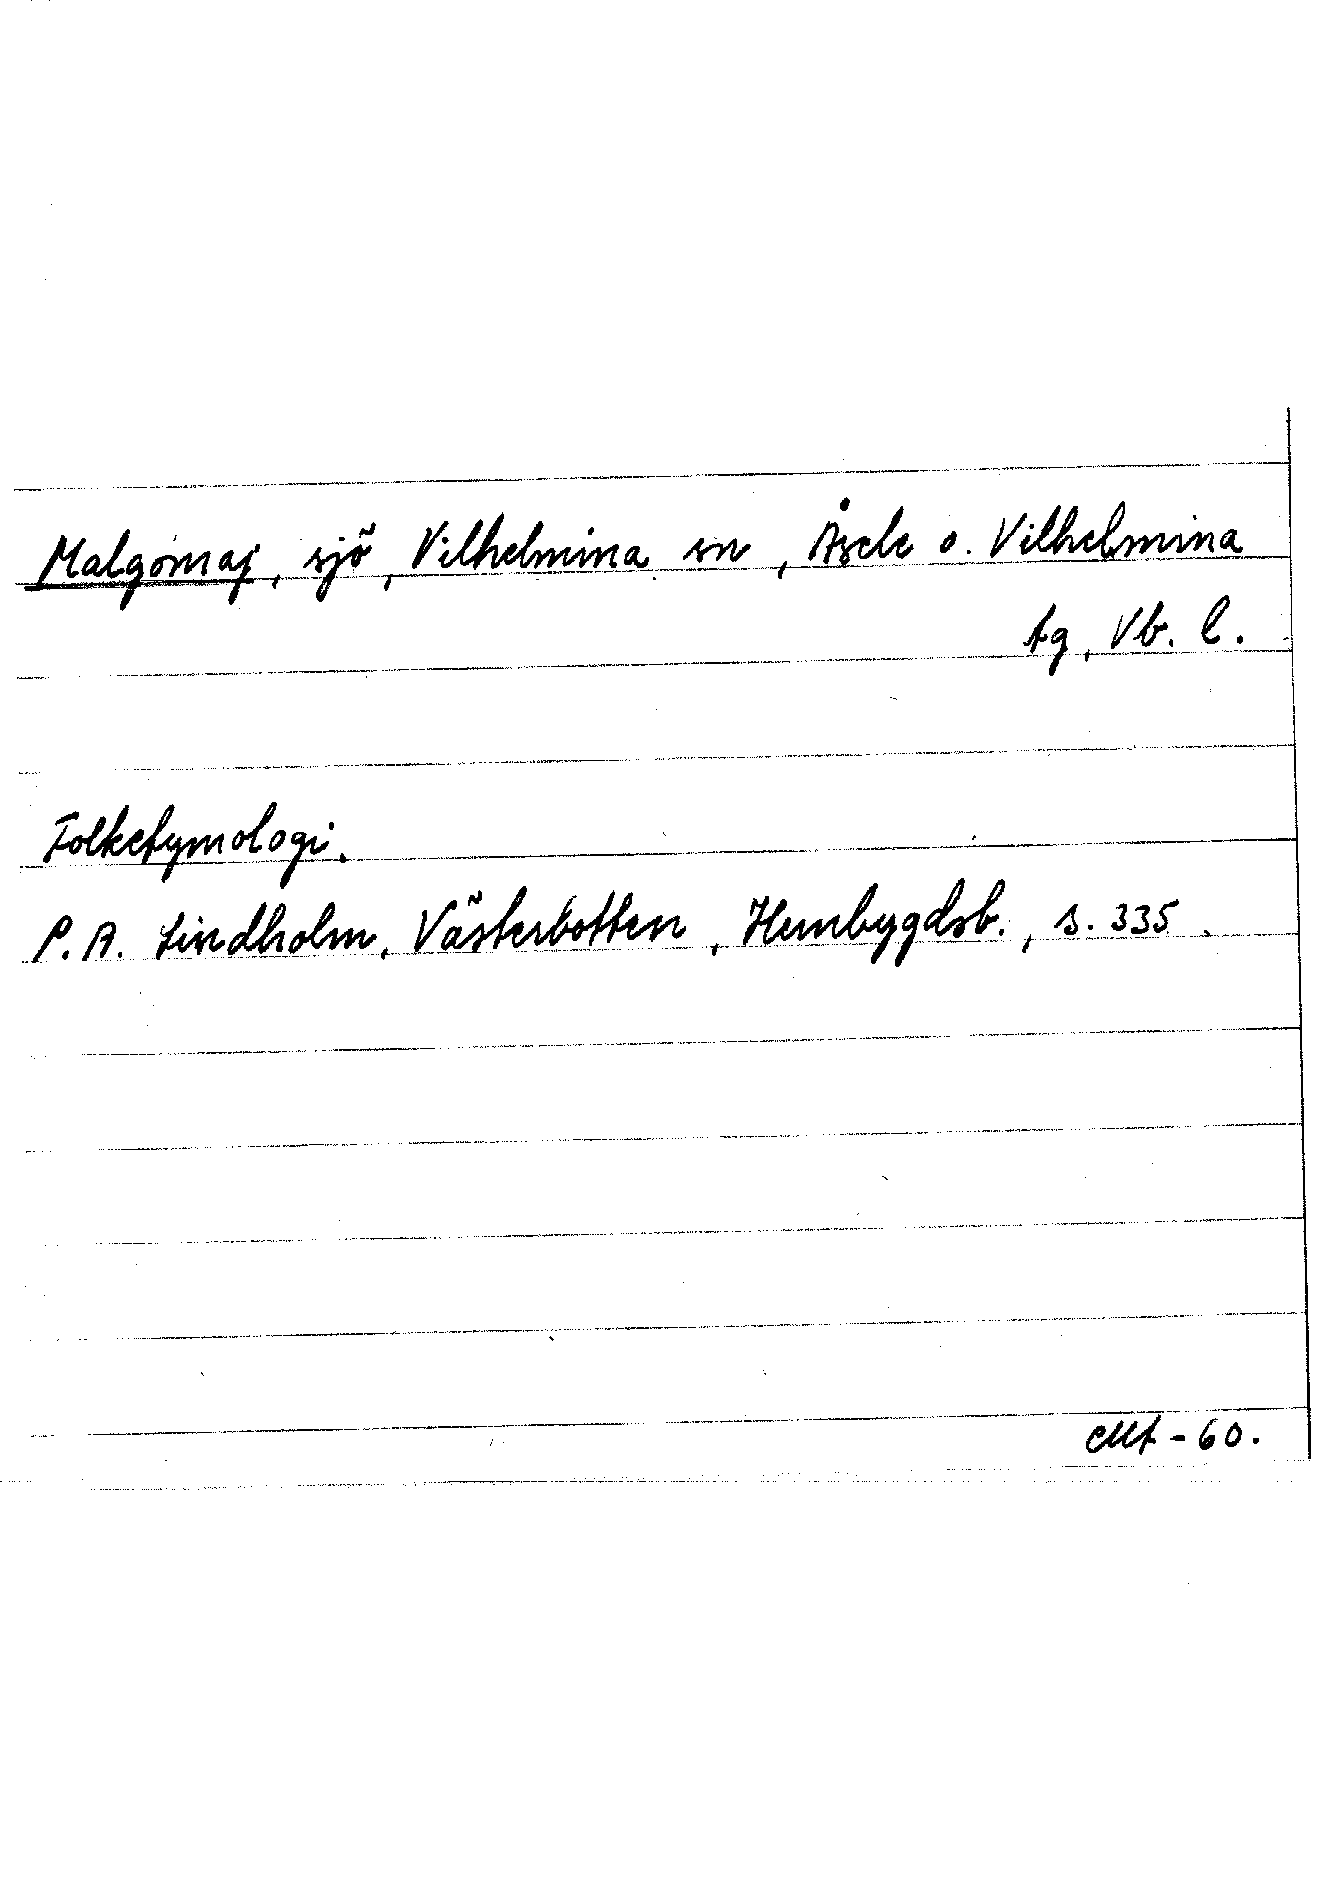 Malgomaj, sjö, Vilhelmina sn, Åsele o. Vilhelmina
tg, Vb. l.
Folketymologi.
P. A. Lindholm, Västerbotten, Hembygdsb., s. 335.
-60.